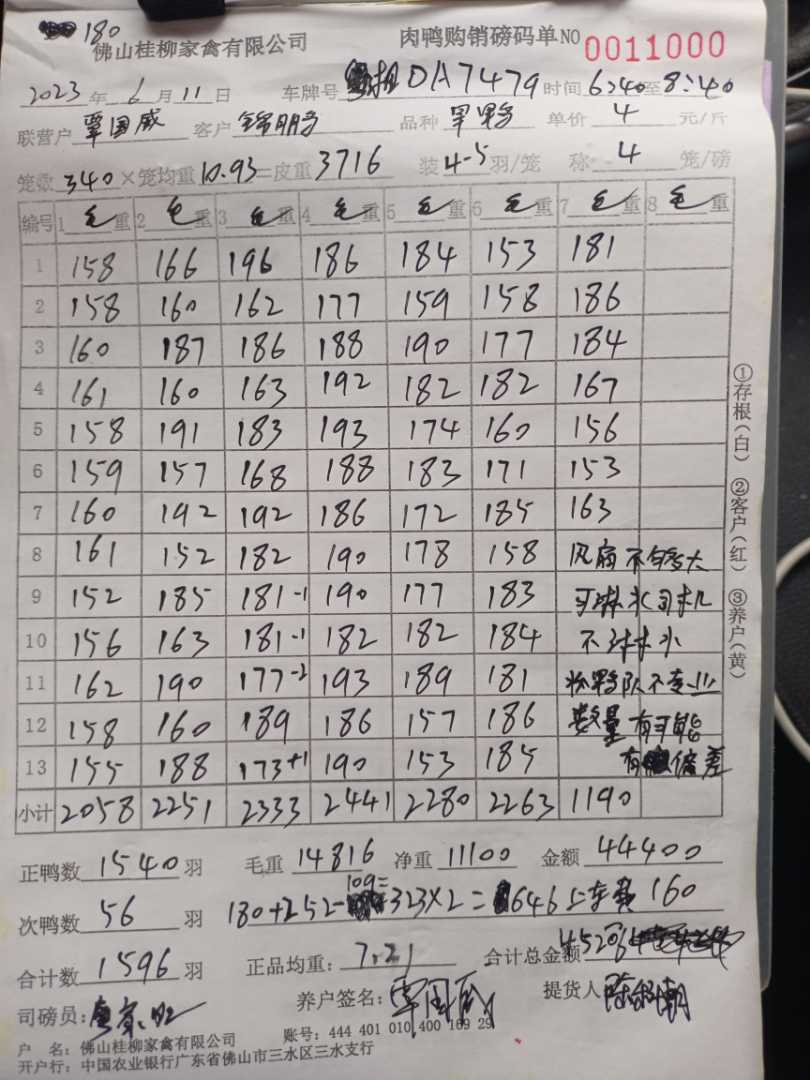 180
佛山桂柳家禽有限公司 肉鸭购销磅码单 NO 0011000
2023 年 6 月 11 日 车牌号 DA7479 时间 6:40 至 8:40
联营户 覃国威 客户 锦朋 品种 单价 4 元/斤
笼数 340 ×笼均重 10.93 =皮重 3716 装 4-5 羽/笼 称 4 笼/磅
编号 1 毛 重 2 毛 重 3 毛 重 4 毛 重 5 毛 重 6 毛 重 7 毛 重 8 毛 重
1 158 166 196 186 184 153 181
2 158 160 162 177 159 158 186
3 160 187 186 188 190 177 184
4 161 160 163 192 182 182 167
5 158 191 183 193 174 160 156
6 159 157 168 188 183 171 153
7 160 192 192 186 172 185 163
8 161 152 182 190 178 158 风扇不够大
9 152 185 181-1 190 177 183 可淋水司机
10 156 163 181-1 182 182 184 不淋水
11 162 190 177-2 193 189 181 队不专业
12 158 160 189 186 157 186 数量有可能
13 155 188 173+1 190 153 185 有偏差
小计 2058 2251 2333 2441 2280 2263 1190
正鸭数 1540 羽 毛重 14816 净重 11100 金额 44400
次鸭数 56 羽 180+252-109=323×2=646 上车费 160
合计数 1596 羽 正品均重: 7.21 合计总金额 45206
司磅员: 养户签名: 覃国威 提货人
户 名: 佛山桂柳家禽有限公司 账号: 444 401 010 400 169 29
开户行: 中国农业银行广东省佛山市三水区三水支行
①存根(白) ②客户(红) ③养户(黄)